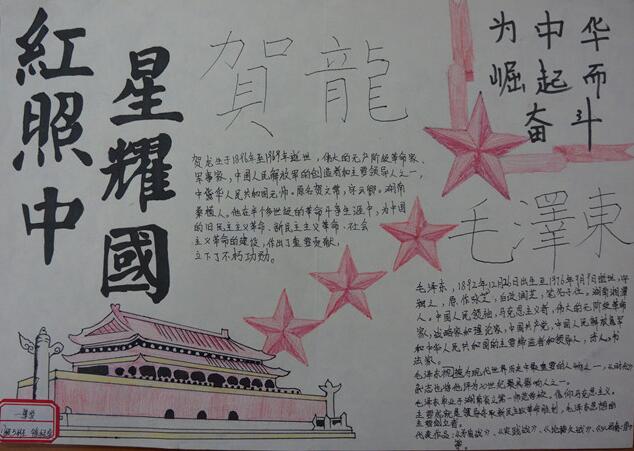 紅星照耀中國
賀龍
为中华
崛起而
奋斗
贺龙生于1896年至1969年逝世，伟大的无产阶级革命家、
军事家，中国人民解放军的创造者和主要领导人之一，
中华人民共和国元帅。原名贺文常，字云卿，湖南
桑植人。他在半个多世纪的革命斗争生涯中，为中国
的旧民主主义革命、新民主主义革命、社会
主义革命的建设，作出了重要贡献，
立下了不朽功勋。
毛澤東
毛泽东，1892年12月26日出生至1976年9月9日逝世，字
润之，原作咏芝，后改润芝，笔名子任。湖南湘潭
人。中国人民领袖，马克思主义者，伟大的无产阶级革命
家，战略家和理论家，中国共产党，中国人民解放军
和中华人民共和国的主要缔造者和领导人，诗人，书
法家。
毛泽东被视为现代世界历史中最重要的人物之一，《时代》
杂志也将他评为20世纪最具影响人之一。
毛泽东毕业于湖南省立第一师范学校，信仰马克思主义。
主要成就是领导夺取新民主革命胜利，毛泽东思想的
主要创立者。
代表作品：《矛盾论》、《实践论》、《论持久战》、
等。
一等奖